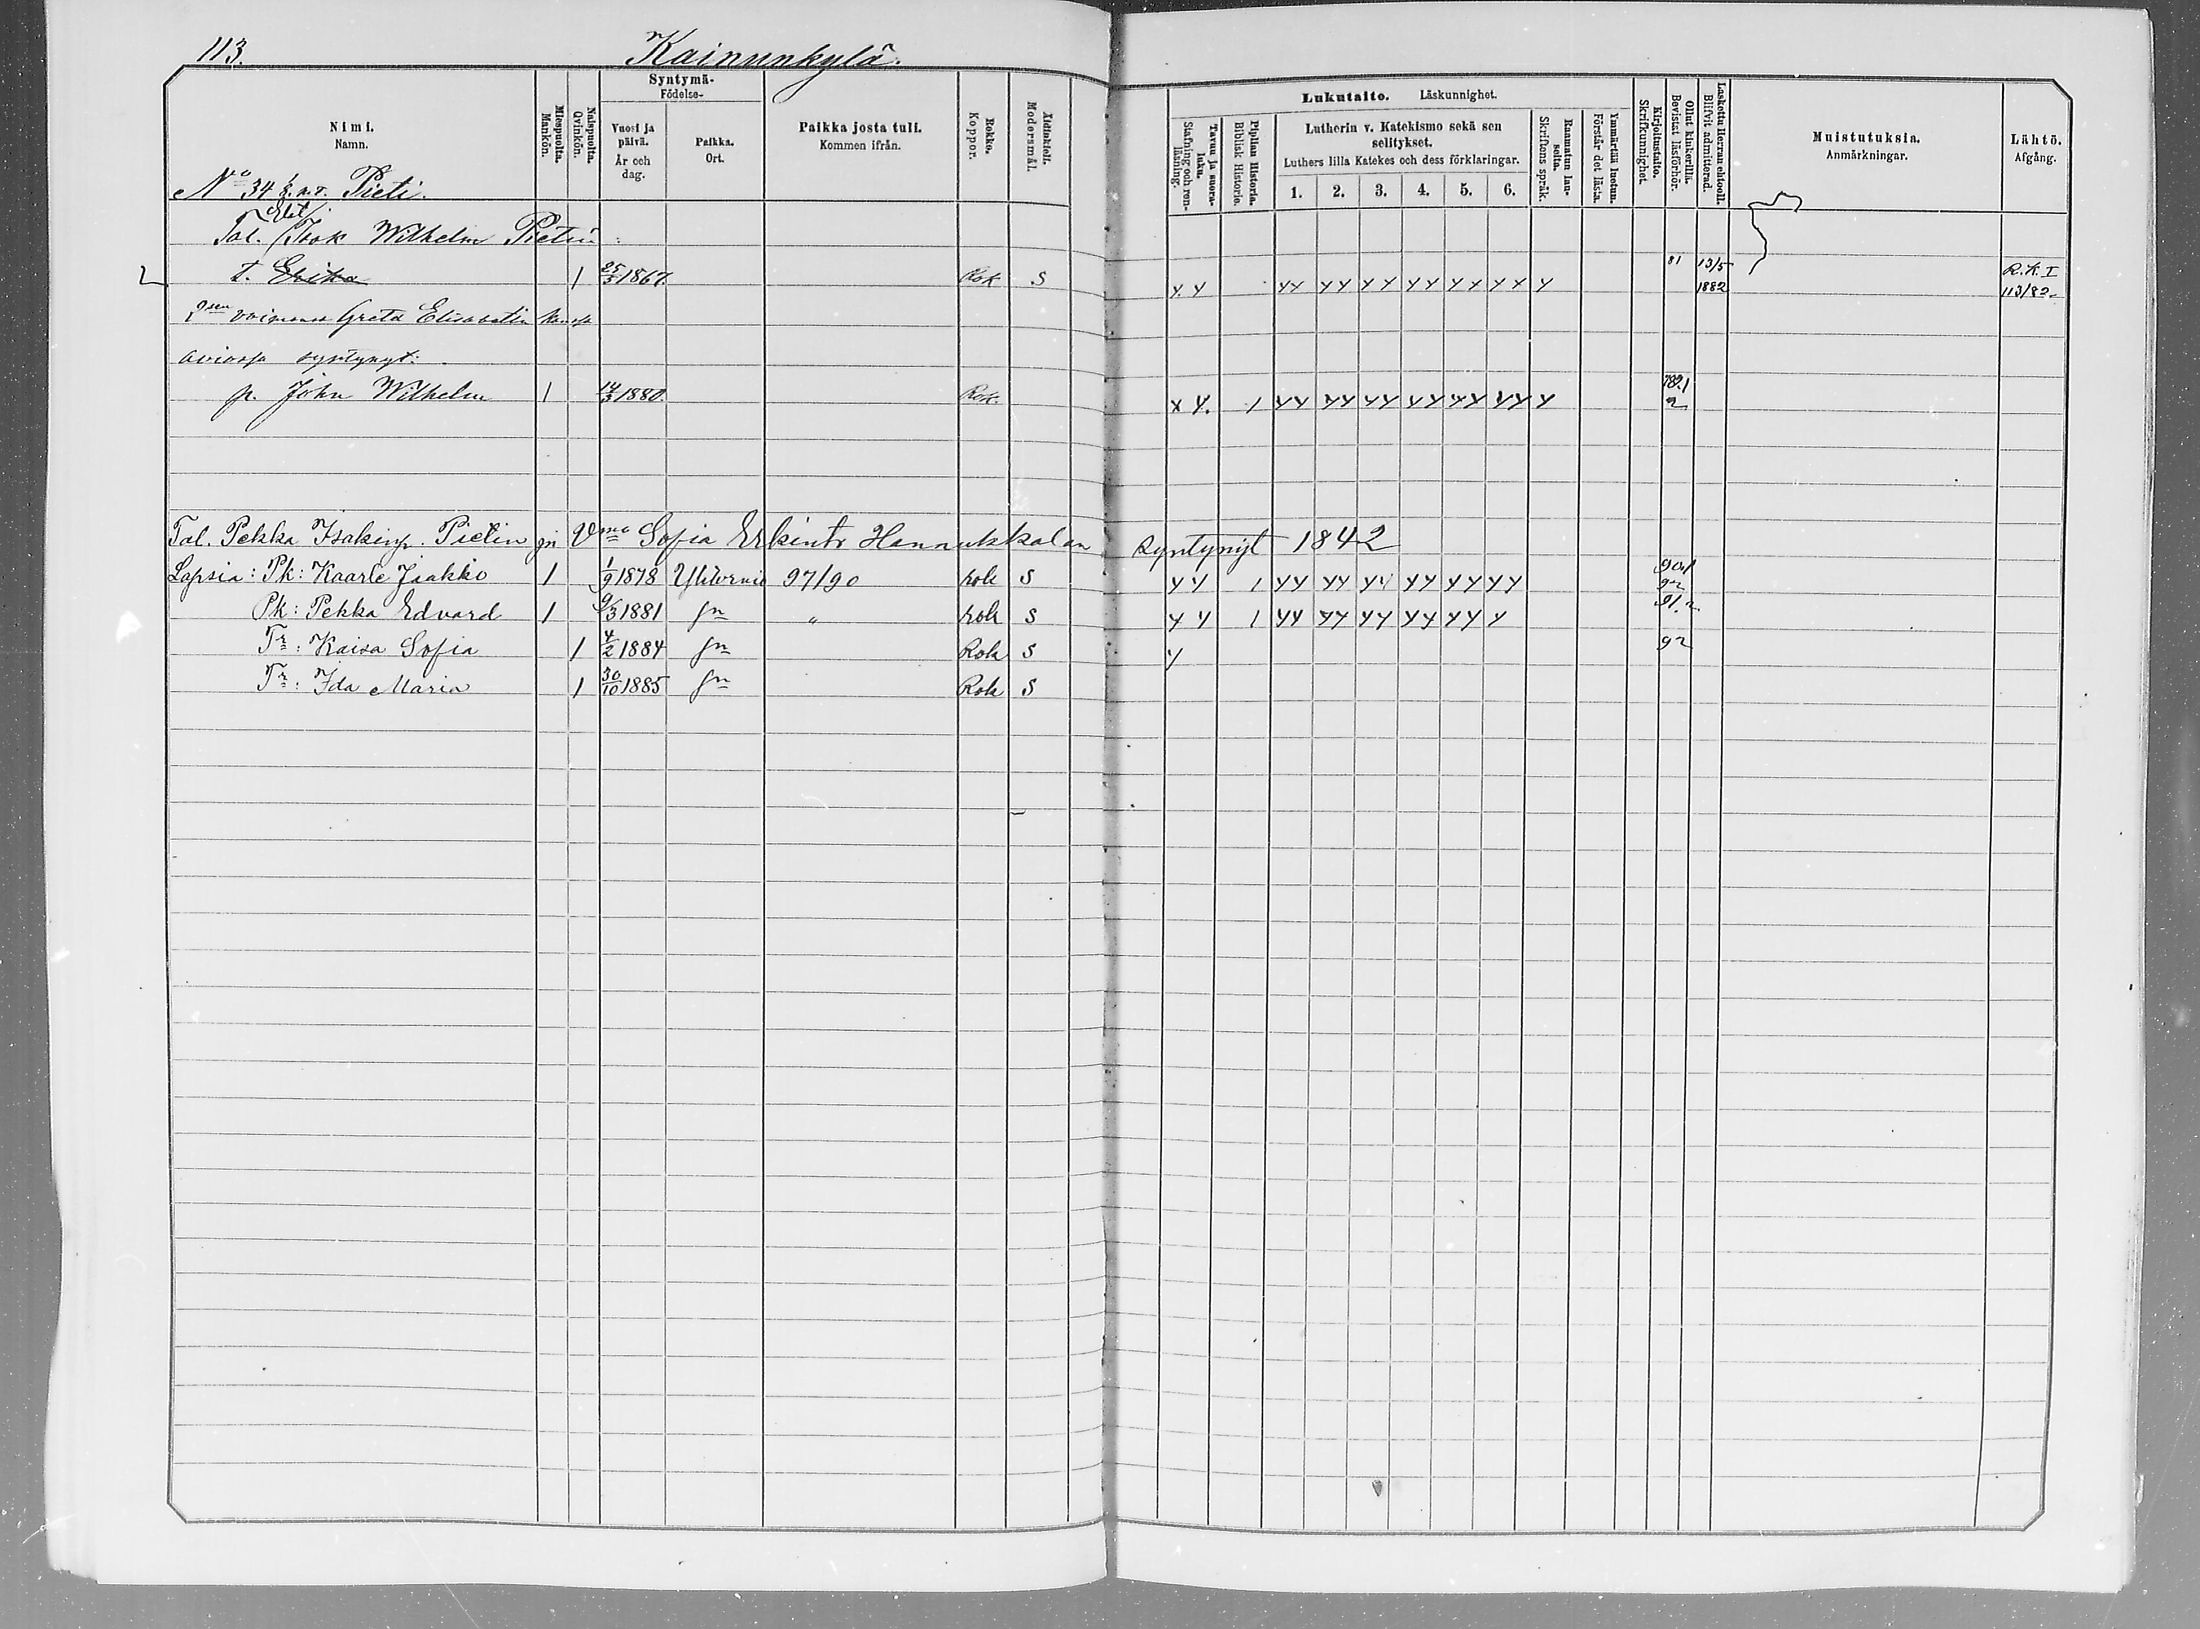 113. Kainunkylä.
Nimi. Namn.
Miespuolta. Mankön.
Naispuolta. Qvinkön.
Syntymä- Födelse-
Vuosi ja päivä. År och dag.
Paikka. Ort.
Paikka josta tuli. Kommen ifrån.
Rokko. Koppor.
Äidinkieli. Modersmål.
Lukutaito. Läskunnighet.
Tavuu ja suora- luku. Stafning och ren- läsning.
Piplian Historia. Biblisk Historie.
Lutherin v. Katekismo sekä sen selitykset.
Luthers lilla Katekes och dess förklaringar.
1. 2. 3. 4. 5. 6.
Raamatun lau- seita. Skriftens språk.
Ymmärtää luetun. Förstår det lästa.
Kirjoitustaito. Skrifkunnighet.
Ollut kinkerillä. Bevistat läsförhör.
Laskettu Herran ehtooll. Blifvit admitterad.
Muistutuksia. Anmärkningar.
Lähtö. Afgång.
No 34 Pieti.
Tal. Isak Wilhelm Pietin:
t. Erika 1 25/3 1867. Rok S x y yy yy yy yy yx yx y 81 13/5 1882 R.K. I 113/82.
2sen vaimonsa Greta Elisabetin kanssa
aviossa syntynyt:
p. John Wilhelm 1 14/3 1880. Rok. x y. 1 yy yy yy yy yy yy y
Tal. Pekka Isakinp. Pietin ja Vmo Sofia Erkintr Hannukkalan syntynyt 1842
Lapsia: Pk: Kaarle Jaakko 1 1/9 1878 Ylitornio 97/90 rok S yy 1 yy yy yy yy yy yy
Pk: Pekka Edvard 1 9/3 1881 sn " rok S yy 1 yy yy yy yy yy y 91.2
Tr: Kaisa Sofia 1 4/2 1884 sn Rok S y 92
Tr: Ida Maria 1 30/10 1885 sn Rok S